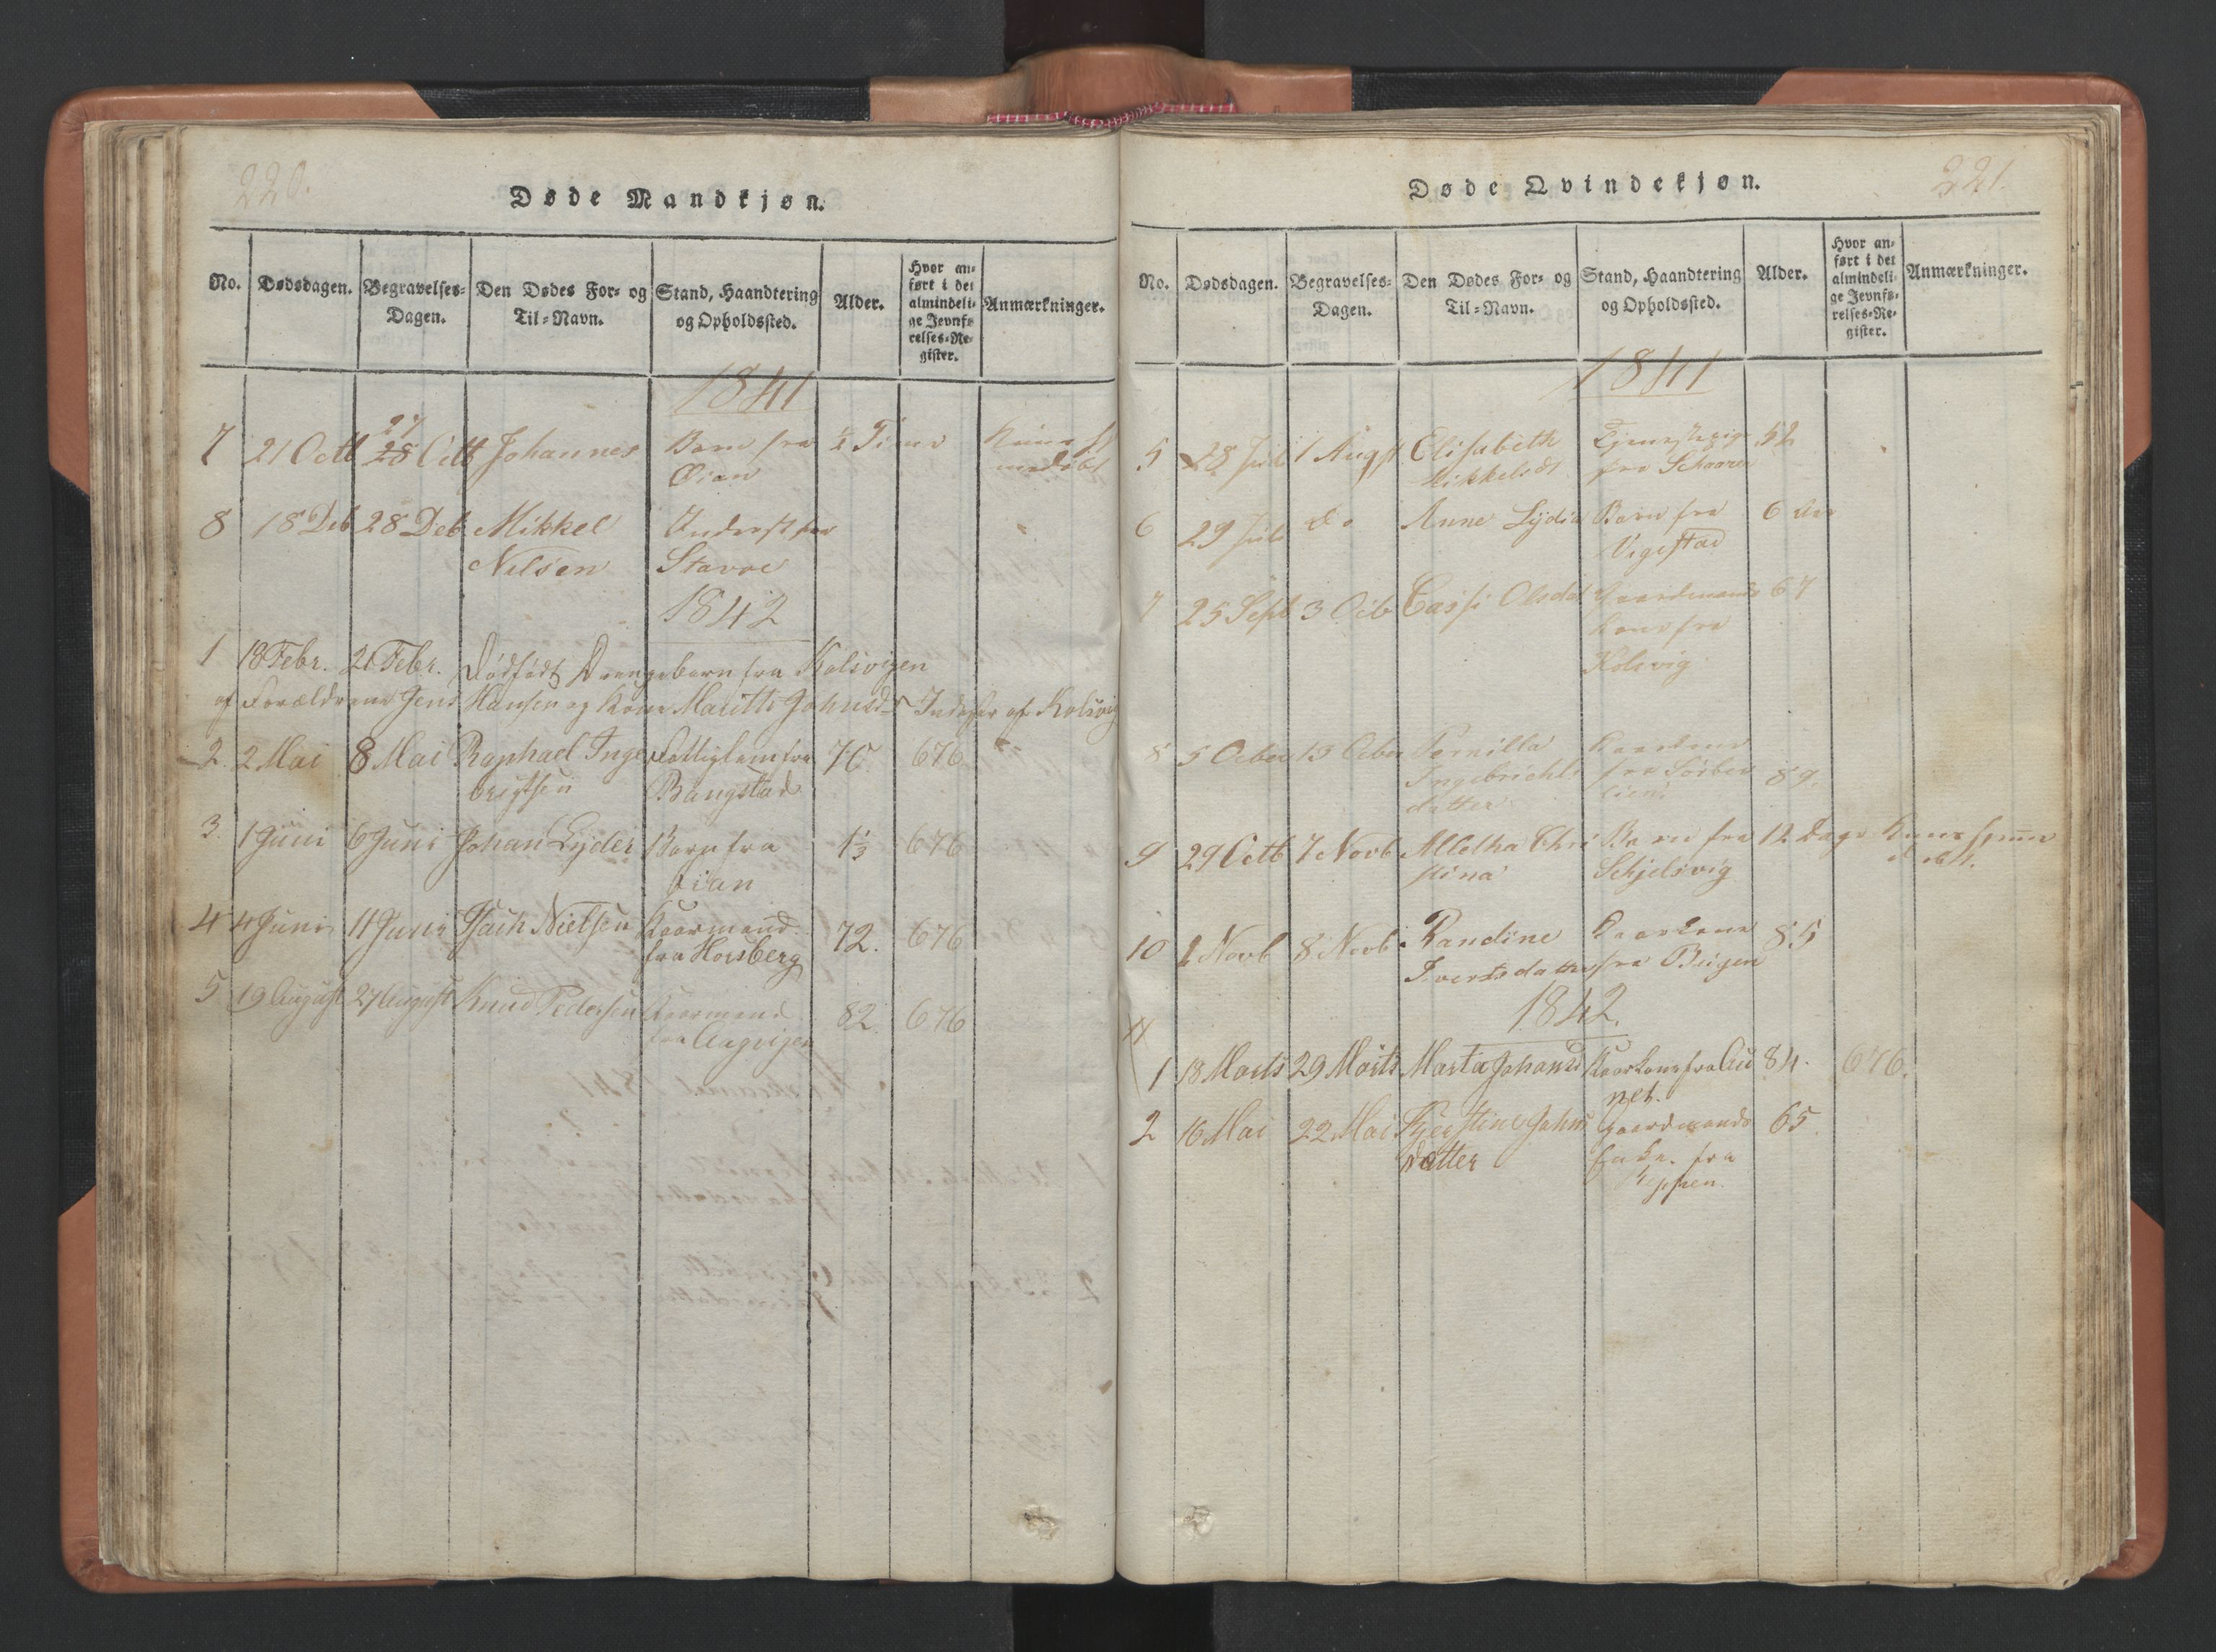 220.
Døde Mandkjøn.
No. Dødsdagen. Begravelses-Dagen. Den Dødes For- og Til-Navn. Stand, Haandtering og Opholdssted. Alder. Hvor anført i det almindelige Jevnførelses-Register. Anmærkninger.
1841
7 21 Octb 28 Octb Johannes Barn fra ½ Time
27
Øian
8 18 Deb 28 Deb Mikkel Inderst fra
Nilsen Stavøe
1842
1 18 Febr. 21 Febr. Dødfødt Drengebarn fra Kolsvigen
af Forældrene Jens Hansen og Kone Maritte Johnsd. af Kolsvig
2. 2 Mai 8 Mai Raphael Inge Fattiglem fra 76 676
brigtsen Bangstad
3. 1 Juni 6 Juni Johan Lyder Barn fra 1⅓ 676
Øian
4 4 Juni 11 Juni Isach Nielsen Kaarmand 72. 676
fra Horsberg
5 19 August 27 August Knud Pedersen Kaarmand 82. 676
fra Aagvigen
221.
Døde Qvindekjøn.
No. Dødsdagen. Begravelses-Dagen. Den Dødes For- og Til-Navn. Stand, Haandtering og Opholdssted. Alder. Hvor anført i det almindelige Jevnførelses-Register. Anmærkninger.
1841
5 28 Juli 1 Augst Elisabeth Tjenestepige 52
Mikkelsdt fra
6 29 Juli Do Anne Lydia Barn fra 6 Aar
Vigestad
7 25 Sept 3 Octb Cassi Olsdt Gaardmands 67
Kone fra
Kolsvig
8 5 Octber 13 Octber Pernilla Kaarkone
Ingebrichts fra Sørber 89.
datter lien.
9 29 Octb 7 Novb Alletha Chri Barn fra 12 Dage
stina Schjelsvig
10 1 Novb 8 Novb Randine Kaarkone 85
Iversdatter fra
1842.
1 18 Marts 29 Marts Marta Johansd Kaarkone fra Au 84. 676.
net.
2 16 Mai 22 Mai Kjerstine Johns Gaardmands 65
datter Enke. fra